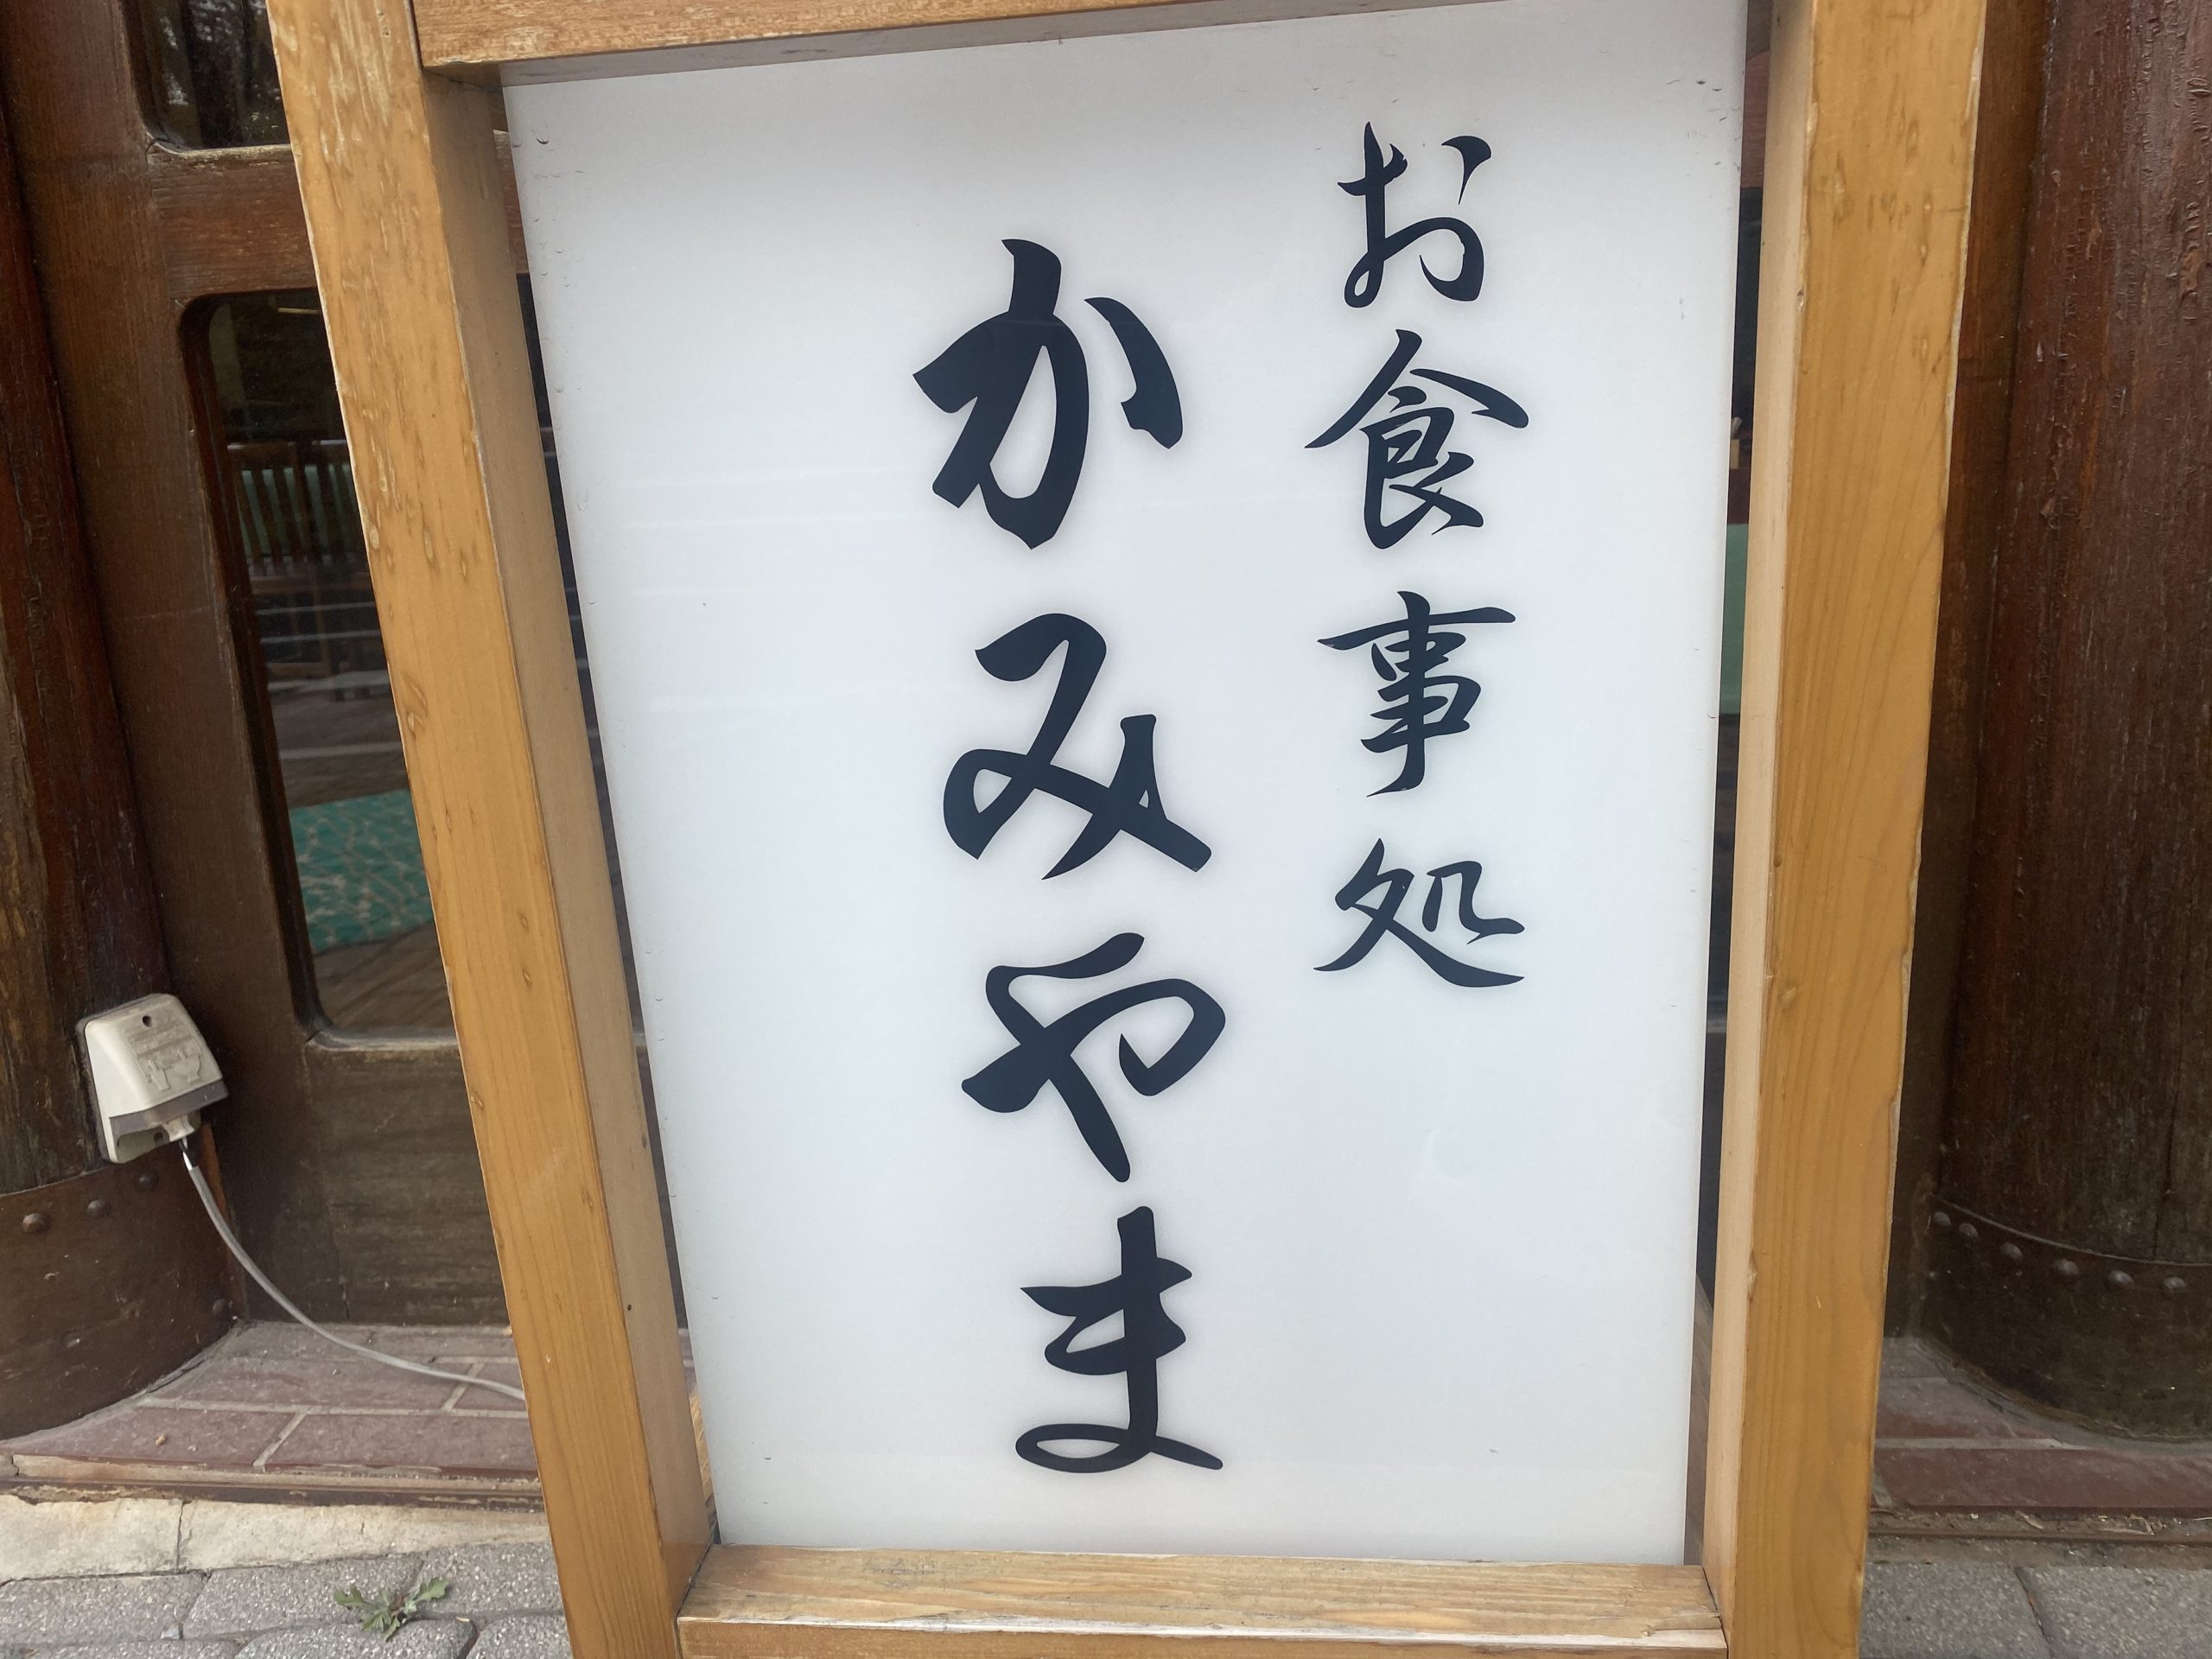 お食事処
かみやま